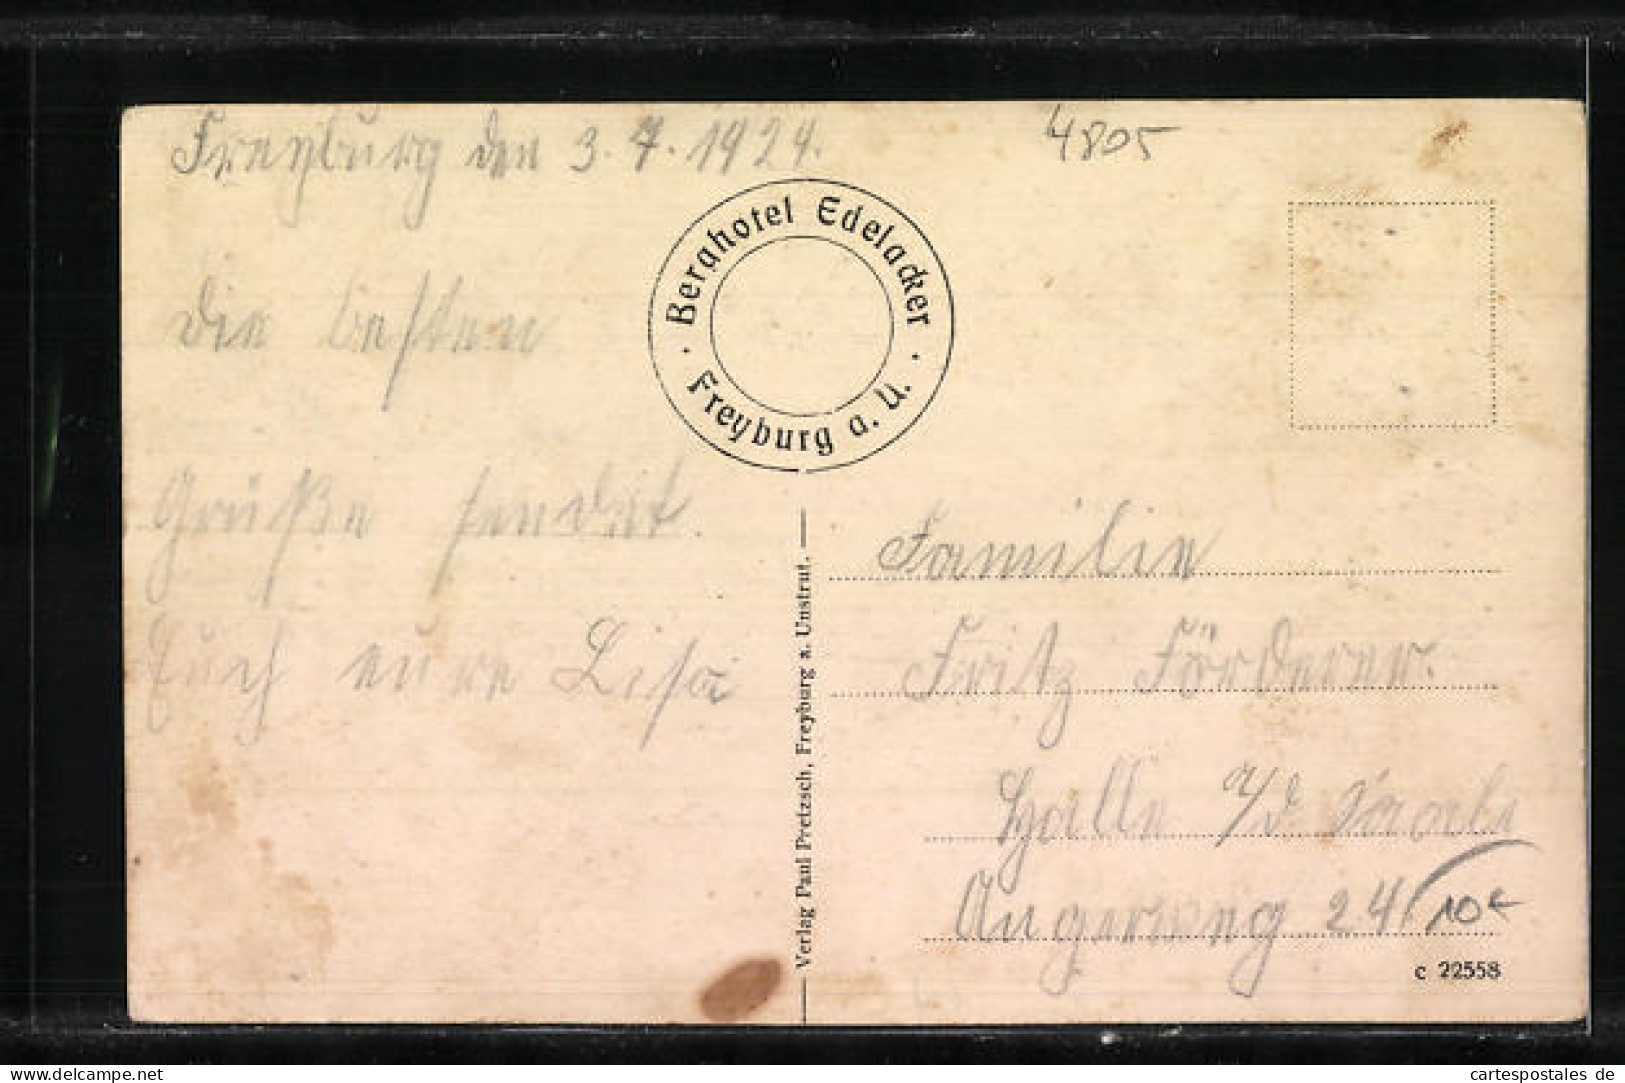 Freyburg den 3.7.1929.
4805
Berghotel Edelacker
Freyburg a. U.
die besten
Grüße sendet
Euch eure Lisa
Verlag Paul Pretzsch, Freyburg a. Unstrut.
Familie
Fritz Förderer.
Halle a/d Saale
Angerweg 24
10€
c 22558
delcampe.net
cartespostales de